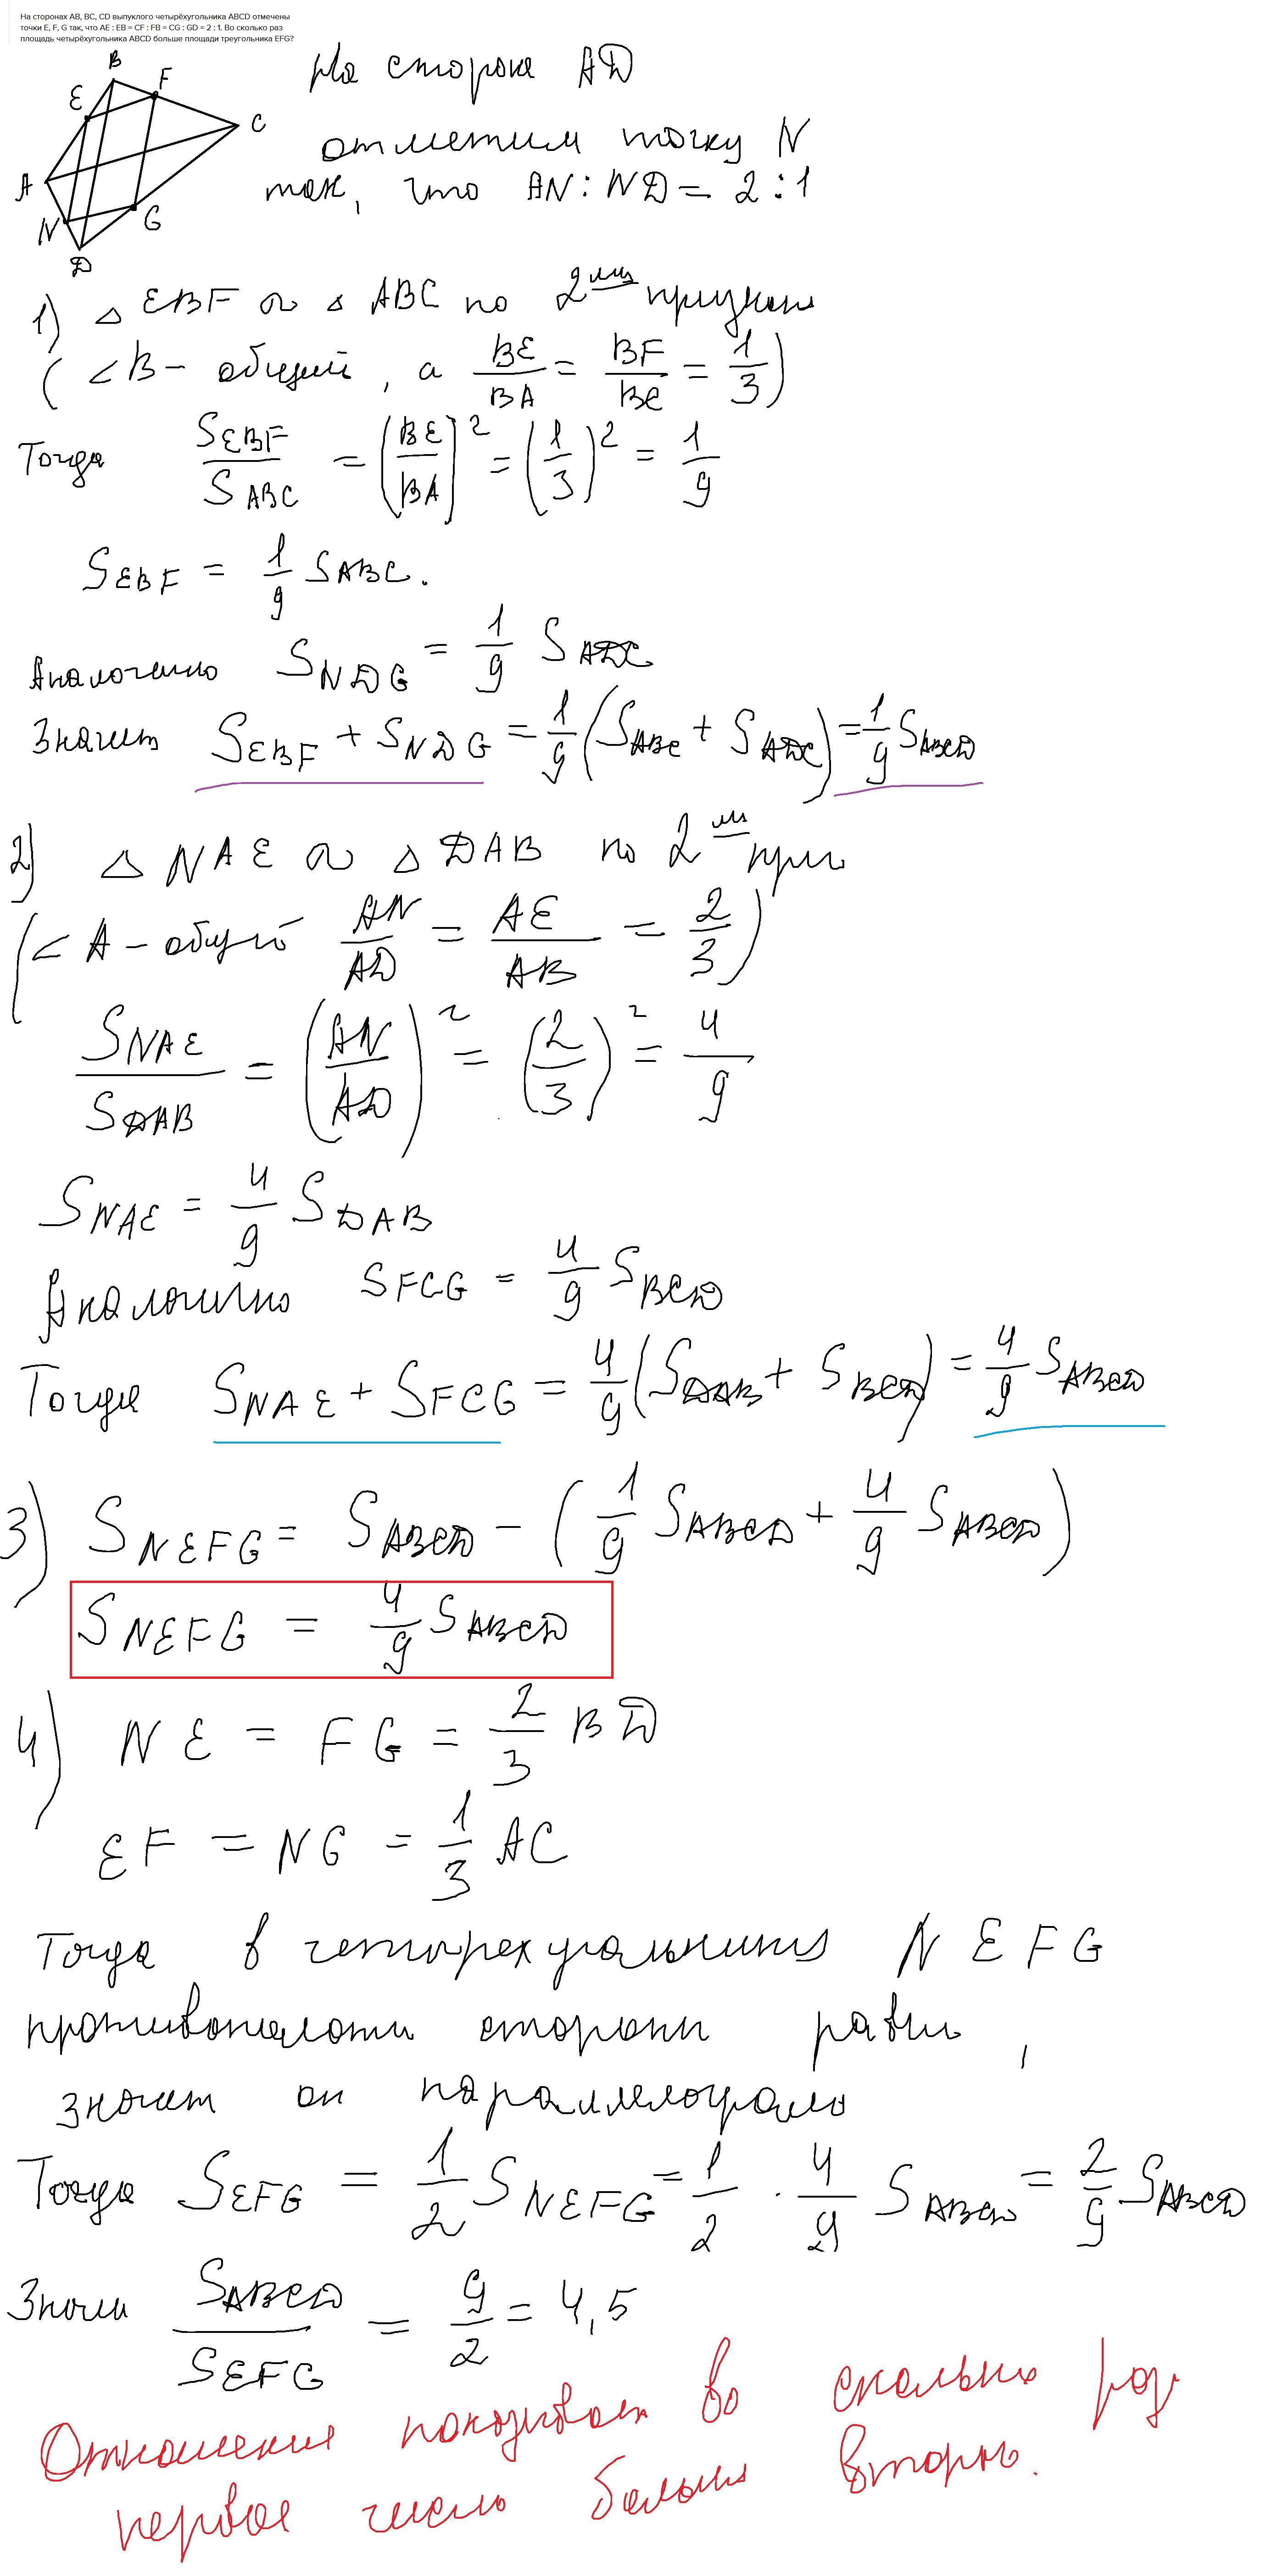 На сторонах AB, BC, CD выпуклого четырёхугольника ABCD отмечены
точки E, F, G так, что AE : EB = CF : FB = CG : GD = 2 : 1. Во сколько раз
площадь четырёхугольника ABCD больше площади треугольника EFG?
На стороне AD
отметим точку N
так, что AN : ND = 2 : 1
B
F
E
C
A
N
G
D
1) △ EBF ∾ △ ABC по 2му признаку
(∠B - общий, а BE/BA = BF/BC = 1/3)
Тогда S EBF / S ABC = (BE/BA)² = (1/3)² = 1/9
S EBF = 1/9 S ABC.
Аналогично S NDG = 1/9 S ADC
Значит S EBF + S NDG = 1/9 (S ABC + S ADC) = 1/9 S ABCD
2) △ NAE ∾ △ DAB по 2му приз
(∠A - общий AN/AD = AE/AB = 2/3)
S NAE / S DAB = (AN/AD)² = (2/3)² = 4/9
S NAE = 4/9 S DAB
Аналогично S FCG = 4/9 S BCD
Тогда S NAE + S FCG = 4/9 (S DAB + S BCD) = 4/9 S ABCD
3) S NEFG = S ABCD - (1/9 S ABCD + 4/9 S ABCD)
S NEFG = 4/9 S ABCD
4) NE = FG = 2/3 BD
EF = NG = 1/3 AC
Тогда в четырехугольнике NEFG
противоположн стороны равны,
значит он параллелограмм
Тогда S EFG = 1/2 S NEFG = 1/2 · 4/9 S ABCD = 2/9 S ABCD
Значит S ABCD / S EFG = 9/2 = 4,5
Отношение показывает во сколько раз
первое число больше второго.